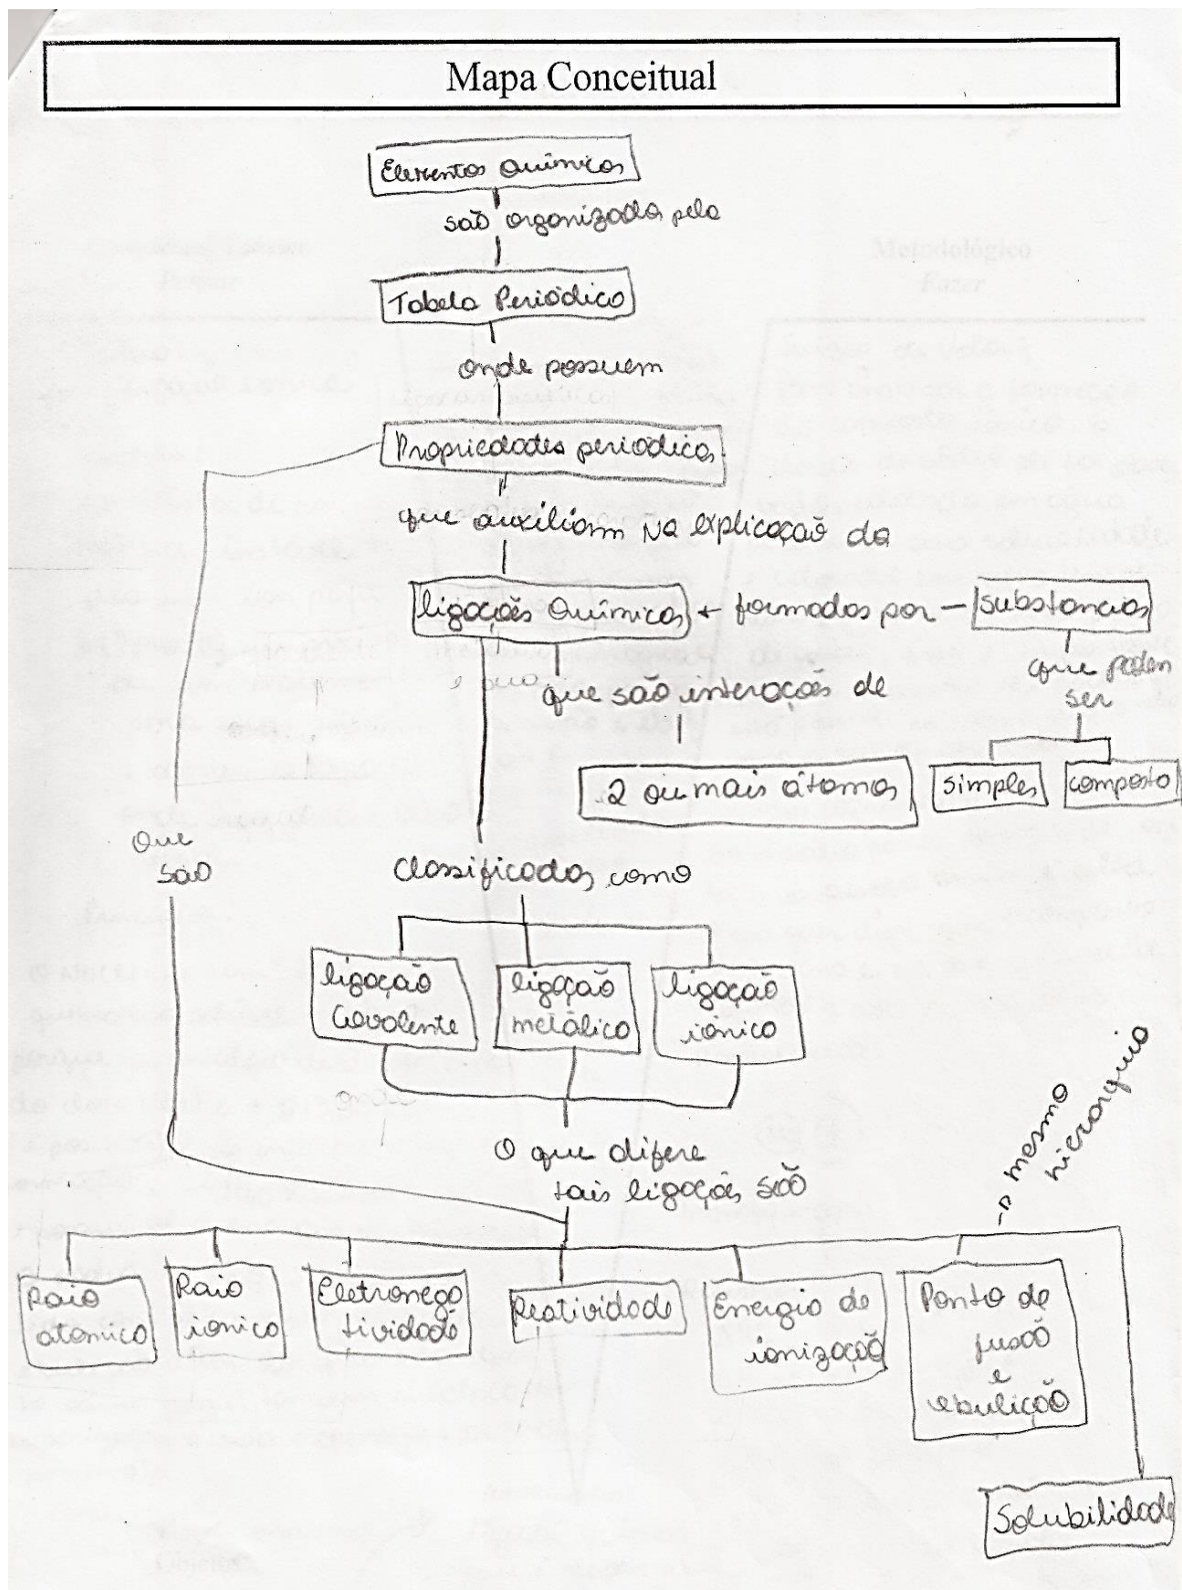 Mapa Conceitual
Elementos Químicos
são organizados pela
Tabela Periódica
onde possuem
Propriedades periodicas
que auxiliam na explicação da
ligações Químicas ← formados por — substancias
que podem
ser
que são interações de
2 ou mais átomos
simples
composto
Que
são
Classificados como
ligação
Covalente
ligação
metálica
ligação
iônica
→ mesmo
hierarquia
O que difere
tais ligações são
Raio
atomico
Raio
ionico
Eletronega
tividade
Reatividade
Energia de
ionização
Ponto de
fusão
e
ebulição
Solubilidade